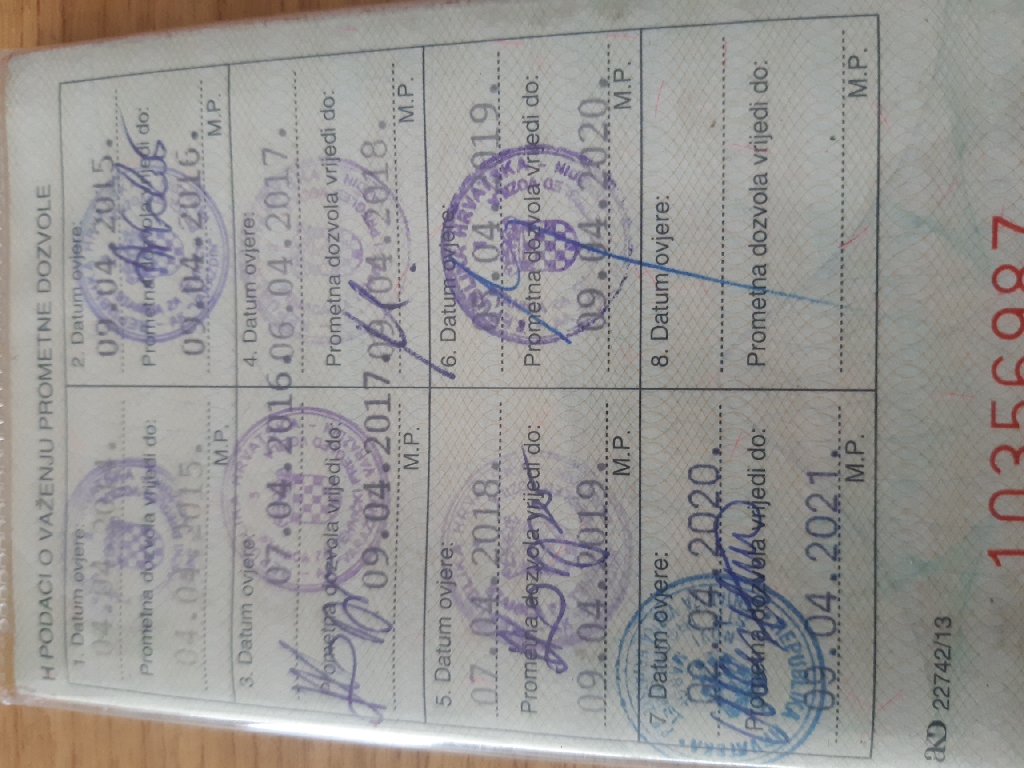 H PODACI O VAŽENJU PROMETNE DOZVOLE
1. Datum ovjere:
Prometna dozvola vrijedi do:
04.04.2015.
M.P.
2. Datum ovjere:
09.04.2015.
Prometna dozvola vrijedi do:
09.04.2016.
M.P.
3. Datum ovjere:
07.04.2016.
Prometna dozvola vrijedi do:
09.04.2017.
M.P.
4. Datum ovjere:
06.04.2017.
Prometna dozvola vrijedi do:
09.04.2018.
M.P.
5. Datum ovjere:
07.04.2018.
Prometna dozvola vrijedi do:
09.04.2019.
M.P.
6. Datum ovjere:
.04.2019.
Prometna dozvola vrijedi do:
09.04.2020.
M.P.
7. Datum ovjere:
.04.2020.
Prometna dozvola vrijedi do:
09.04.2021.
M.P.
8. Datum ovjere:
Prometna dozvola vrijedi do:
M.P.
22742/13
10356987